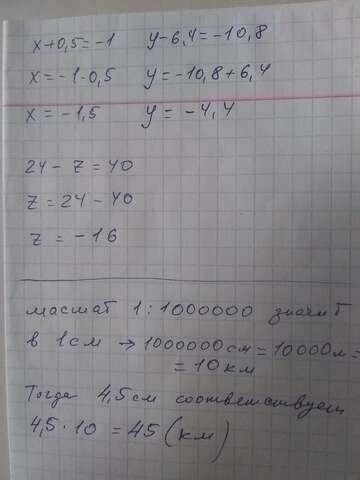 x+0,5=-1 y-6,4=-10,8
x=-1-0,5 y=-10,8+6,4
x=-1,5 y=-4,4
24-z=40
z=24-40
z=-16
масшаб 1:1000000 значит
в 1см → 1000000см=10000м=
=10км
Тогда 4,5см соответствует
4,5·10=45(км)